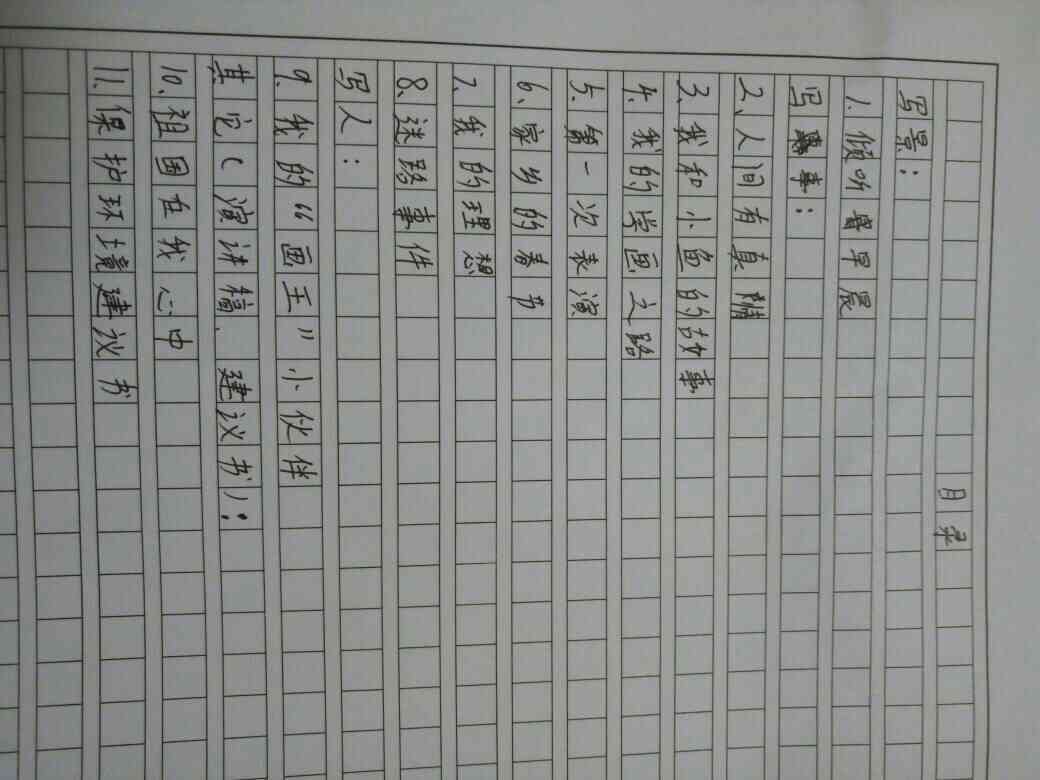 目录
写景:
1.倾听曾早晨
写事:
2、人间有真情
3、我和小鱼的故事
4.我的学画之路
5.第一次表演
6、家乡的春节
7、我的理想
8、迷路事件
写人:
9.我的“画王”小伙伴
其它(演讲稿、建议书):
10、祖国在我心中
11.保护环境建议书